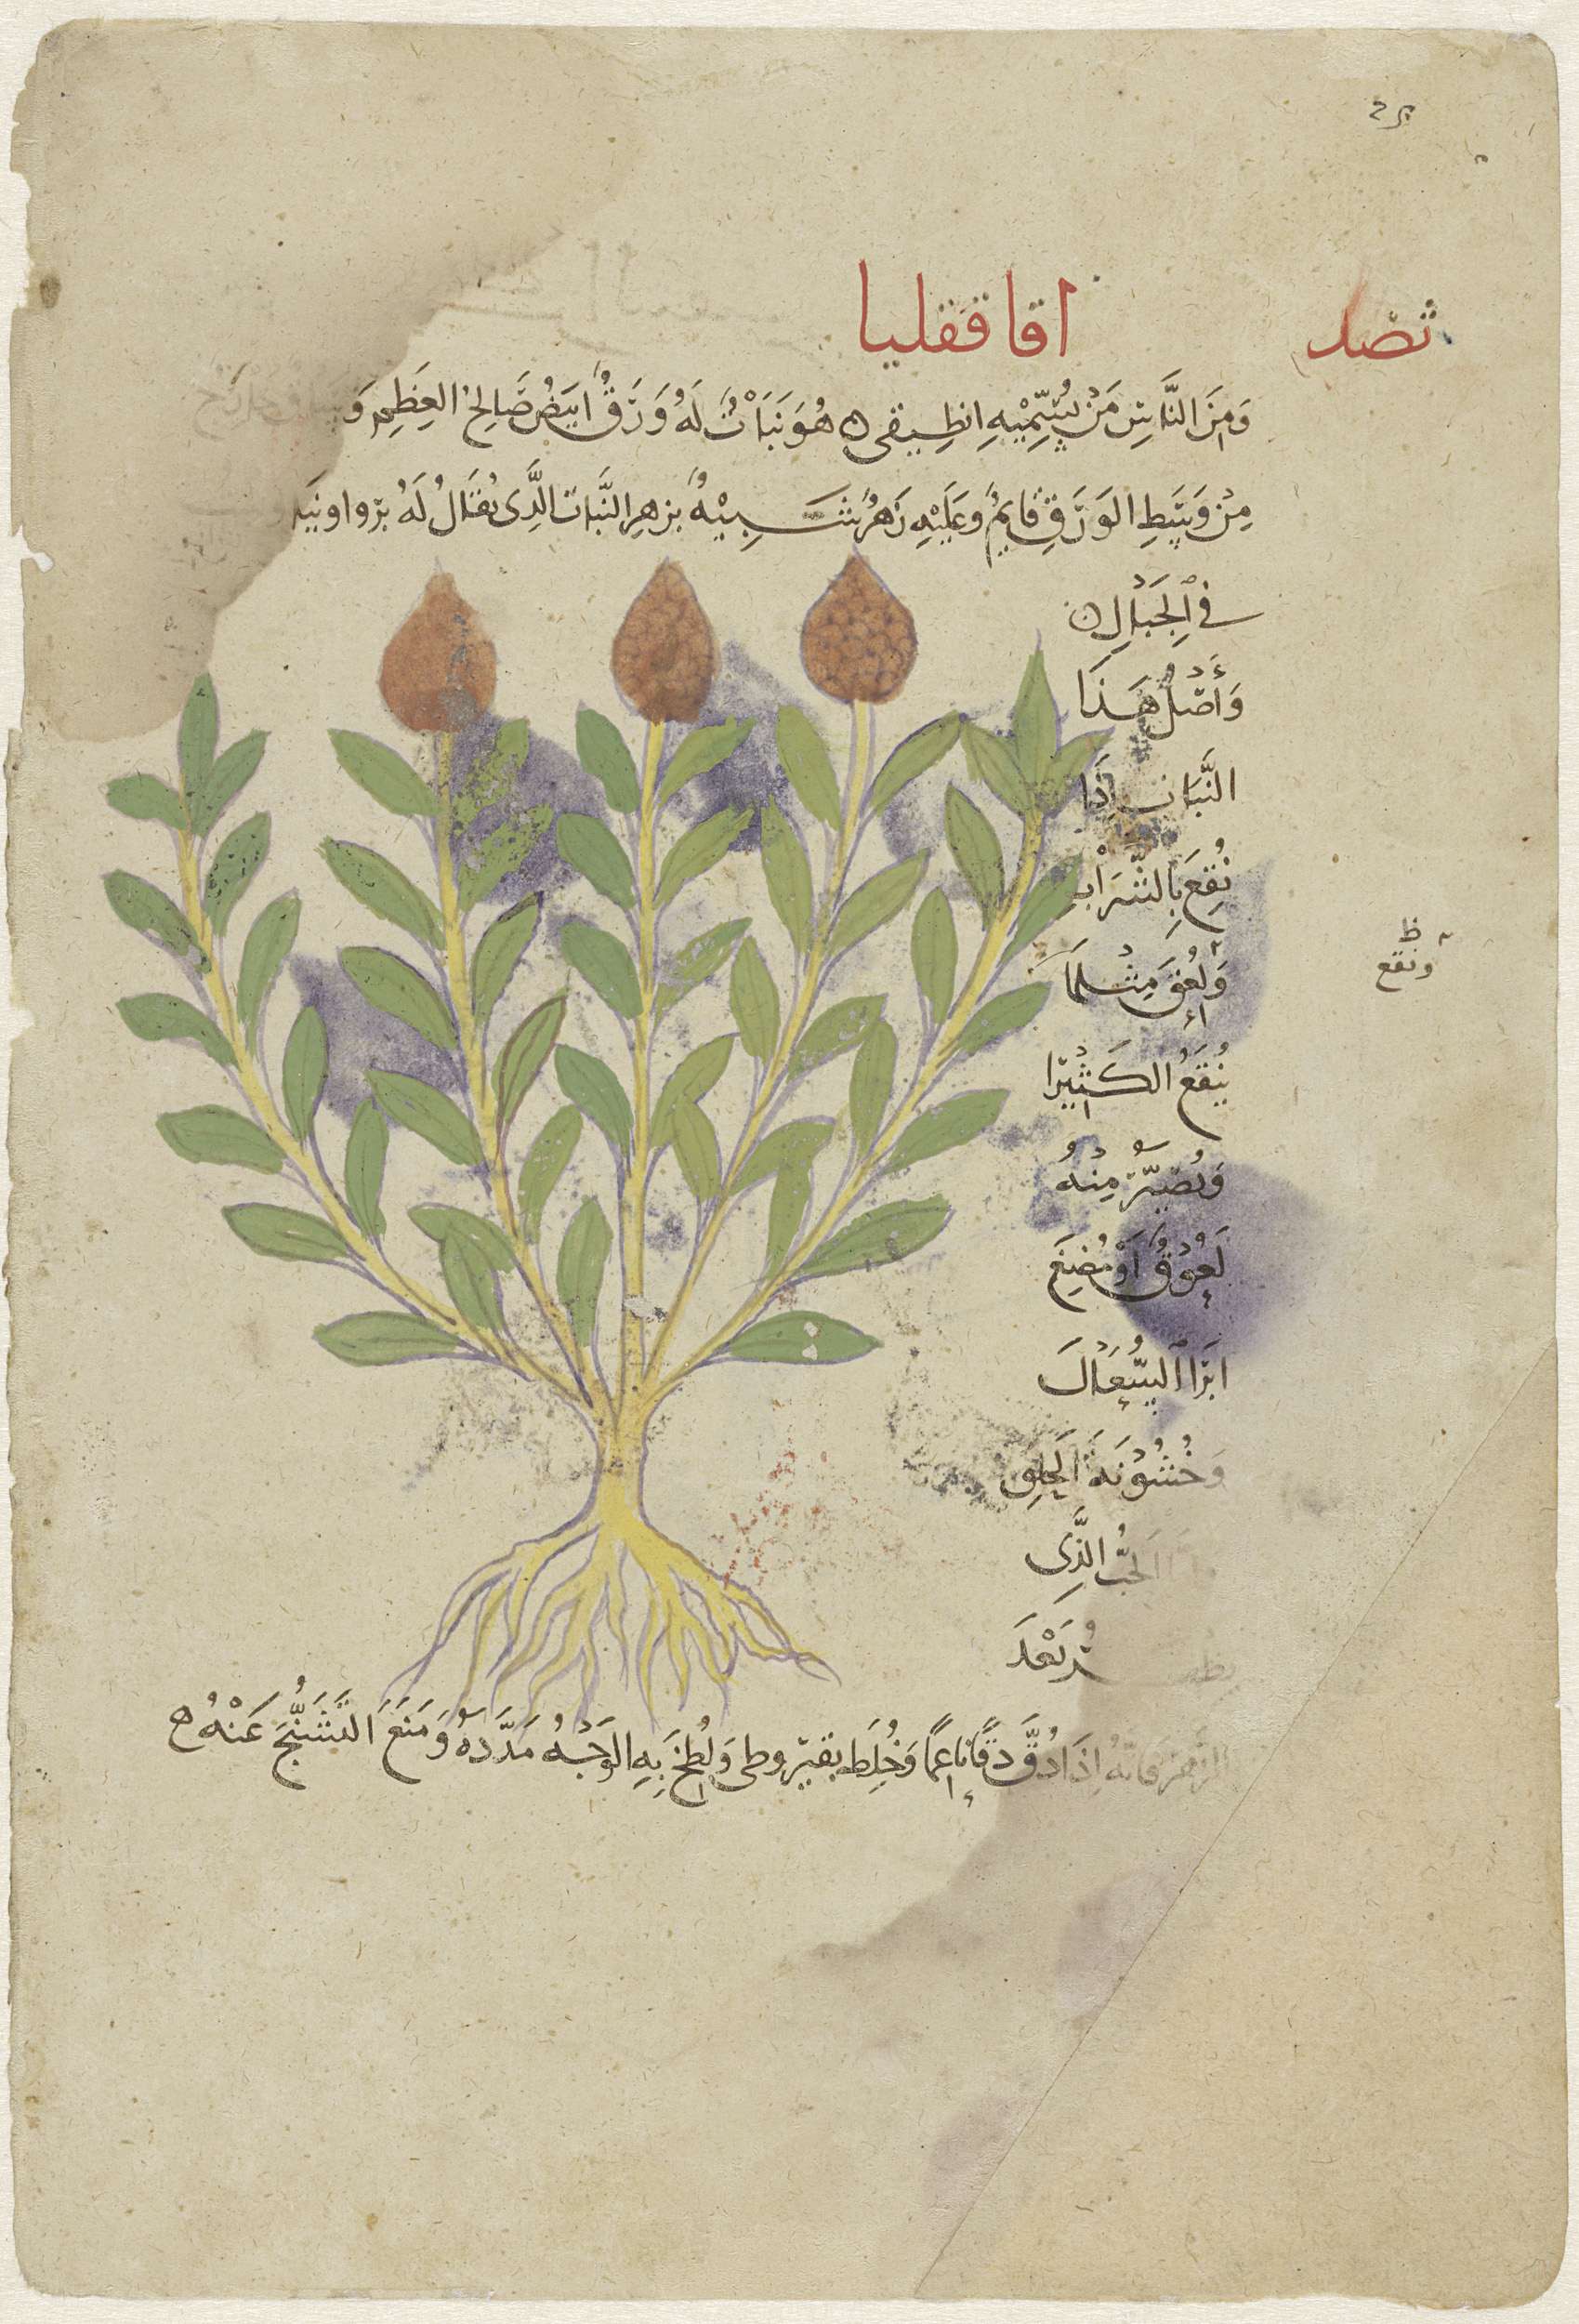 اقاققليا
تصد
وَمِنَ النَّاسِ مَنْ يُسَمِّيْهِ انطِيقى ه هُوَ نَبَاتٌ لَهُ وَرَقٌ ابيَضُ صَالِحُ العِظَمِ وَ
مِنْ وَسَطِ الوَرَقِ قَايمٌ وَعَلَيْهِ زَهْرٌ شَبِيْهٌ بزهرِ النَّبات الَّذِى يُقَالُ لَهُ بروا
فى الجَبَالِ ه
وَأَصْلُ هَذَا
النَّبَات إِذَا
نُقِعَ بِالشَّرَابِ
وَلُعِقَ مِثْلمَا
ونقع
يُنقَعُ الكَثِيْرَا
وَيُصَيَّرْ مِنْهُ
لَعُوْقٌ اَوْ مُضِغَ
ابرَا السُّعَالَ
وَخُشُوْنَةَ الحَلِق
الحَبُّ الَّذِى
بَعْدَ
الزَّهْرِ فَانَّهُ اِذَا دُقَّ دَقًّا نَاعِمًا وَخُلِطَ بقيروطى وَلُطِخَ بِهِ الوَجْهُ مَدَّدَهُ وَمَنَعَ التَّشَنُّجَ عَنْهُ ه